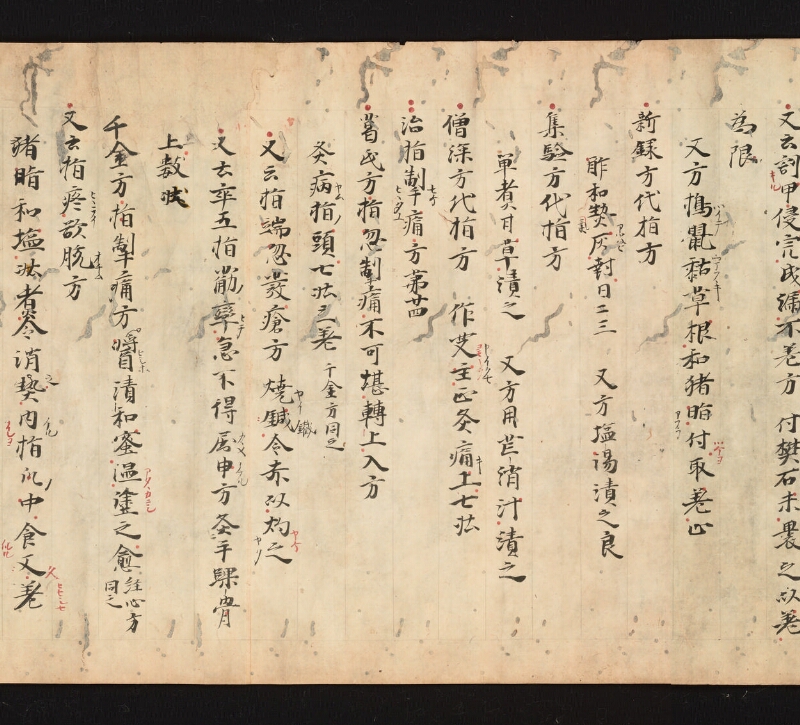 又云割甲侵完成瘡不差方 付樊石末畏之以差
為限
又方搗鼠黏草根和猪脂付取差止
新録方代指方
酢和熬灰封日二三 又方塩湯漬之良
集驗方代指方
單煮甘草漬之 又方用芒消汁漬之
僧深方代指方 作艾主正灸痛上七壮
治指掣痛方第廿四
葛氏方指忽掣痛不可堪轉上入方
灸病指頭七壮立差 千金方同之
又云指端忽發瘡方 燒鍼令赤以灼之
又云卒五指筋攣急不得屈申方灸手踝骨
上數壮
千金方指掣痛方 醤漬和蜜温塗之愈 同之
又云指疼欲脱方
猪脂和塩 者令消熱内指 中食又差